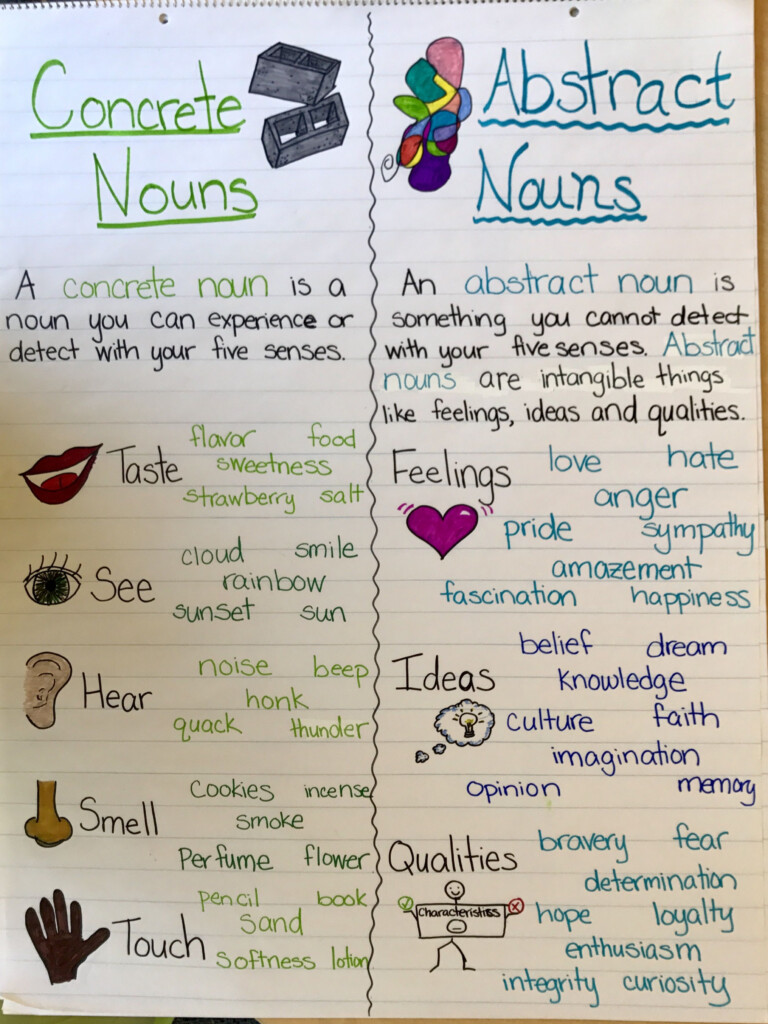 Concrete
Nouns
A concrete noun is a
noun you can experience or
detect with your five senses.
Taste
flavor food
sweetness
strawberry salt
See
cloud smile
rainbow
sunset sun
Hear
noise beep
honk
quack thunder
Smell
cookies incense
smoke
Perfume flower
Touch
pencil book
sand
softness lotion
Abstract
Nouns
An abstract noun is
something you cannot detect
with your five senses. Abstract
nouns are intangible things
like feelings, ideas and qualities.
Feelings
love hate
anger
pride sympathy
amazement
fascination happiness
Ideas
belief dream
knowledge
culture faith
imagination
opinion memory
Qualities
Characteristics
bravery fear
determination
hope loyalty
enthusiasm
integrity curiosity